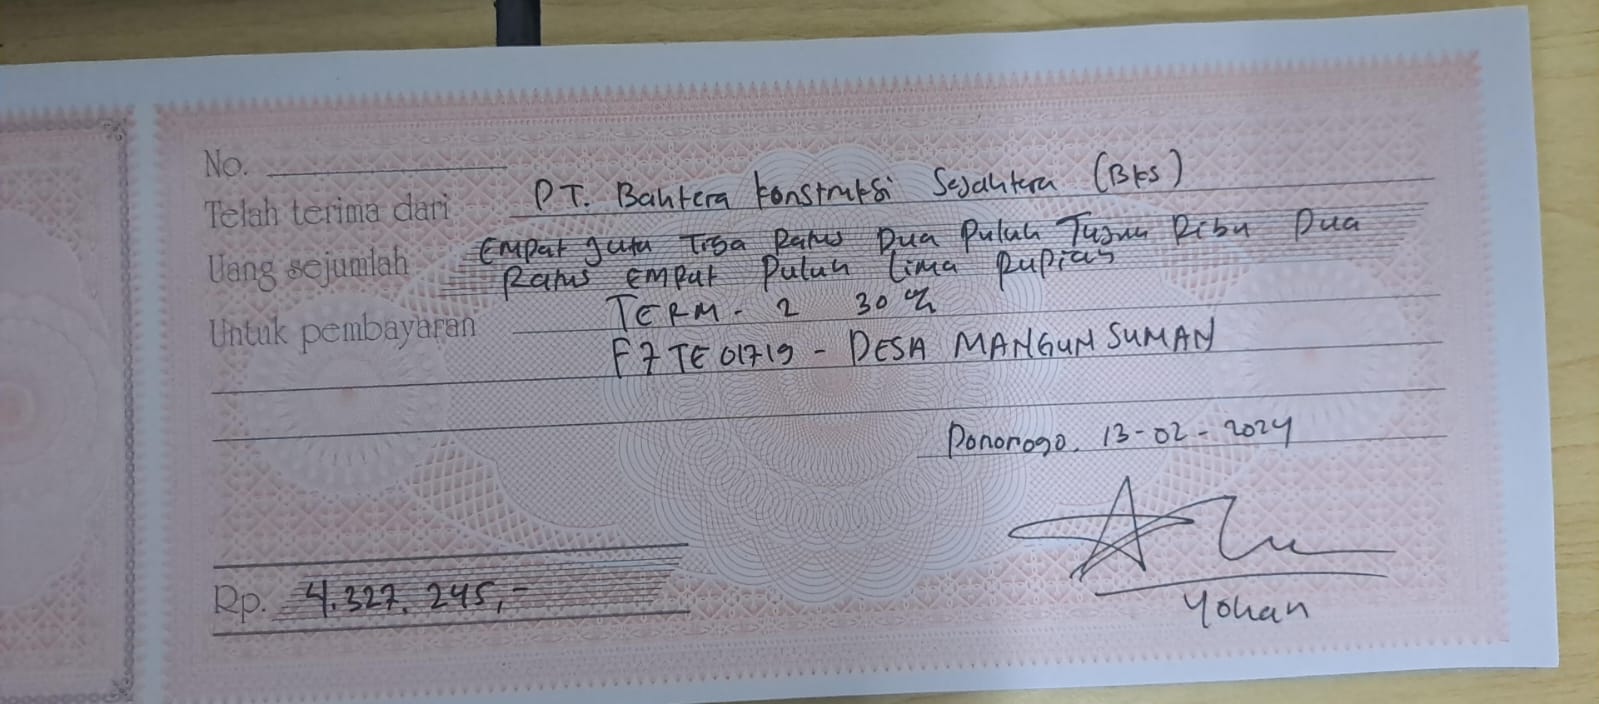 No.
Telah terima dari PT. Bahtera Konstruksi Sejahtera (BKS)
Uang sejumlah Empat Juta Tiga Ratus Dua Puluh Tujuh Ribu Dua
Ratus Empat Puluh Lima Rupiah
Untuk pembayaran TERM - 2 30 %
F7TE01719 - DESA MANGUN SUMAN
Ponorogo, 13-02-2024
Rp. 4.327.245,-
Yohan